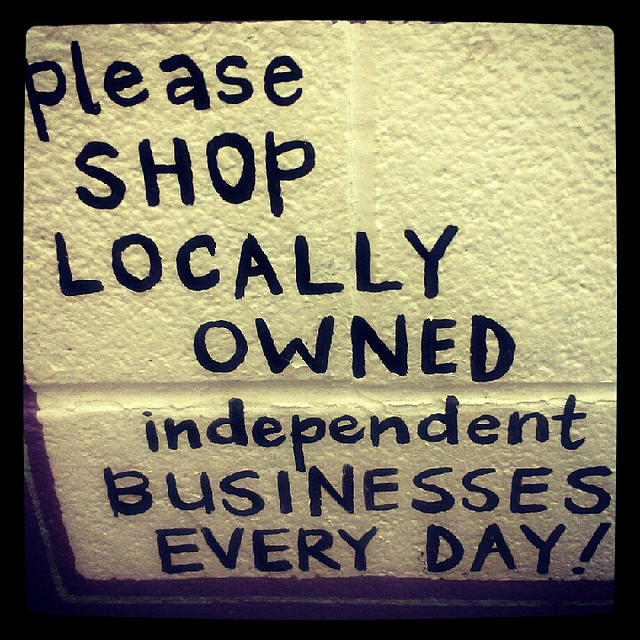 please
SHOP
LOCALLY
OWNED
independent
BUSINESSES
EVERY DAY!